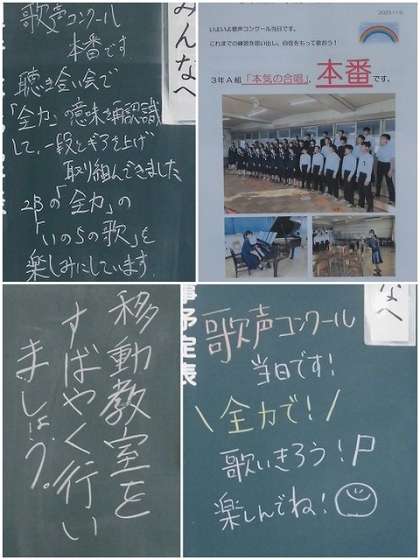 みんなへ
歌声コンクール
本番です。
聴き合い会で
「全力」の意味を再認識
して、一段とギアを上げ
取り組んできました
2Bの「全力」の
「いのちの歌」を
楽しみにしています。
いよいよ歌声コンクール当日です。
これまでの練習を思い出し、自信をもって歌おう!
3年A組「本気の合唱」、本番です。
移動教室を
すばやく行い
ましょう。
事予定表
なへ
歌声コンクール
当日です!
\全力で!/
歌いきろう!
楽しんでね!